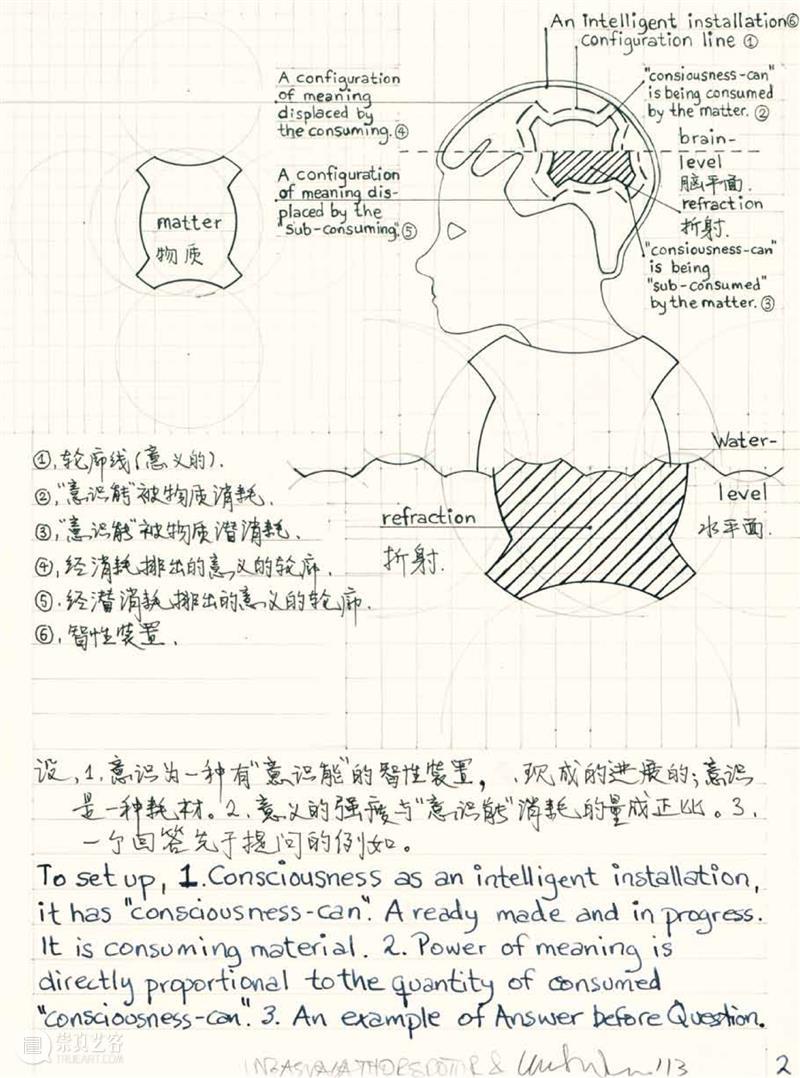 An intelligent installation⑥
configuration line ①
A configuration
of meaning
displaced by
the consuming.④
"consiousness-can"
is being consumed
by the matter. ②
brain-
level
脑平面.
refraction
折射.
A configuration
of meaning dis-
placed by the
"sub-consuming".⑤
"consiousness-can"
is being
"sub-consumed"
by the matter. ③
matter
物质
Water-
level
水平面.
refraction
折射.
①,轮廓线(意义的).
②,"意识能"被物质消耗.
③,"意识能"被物质潜消耗.
④,经消耗排出的意义的轮廓.
⑤,经潜消耗排出的意义的轮廓.
⑥,智性装置.
设,1,意识为一种有"意识能"的智性装置,、现成的进展的;意识
是一种耗材。2,意义的强度与"意识能"消耗的量成正比。3,
一个回答先于提问的例如。
To set up, 1. Consciousness as an intelligent installation,
it has "consciousness-can". A ready made and in progress.
It is consuming material. 2. Power of meaning is
directly proportional to the quantity of consumed
"consciousness-can". 3. An example of Answer before Question.
&
'13
2
崇真艺客
TRUEART.COM